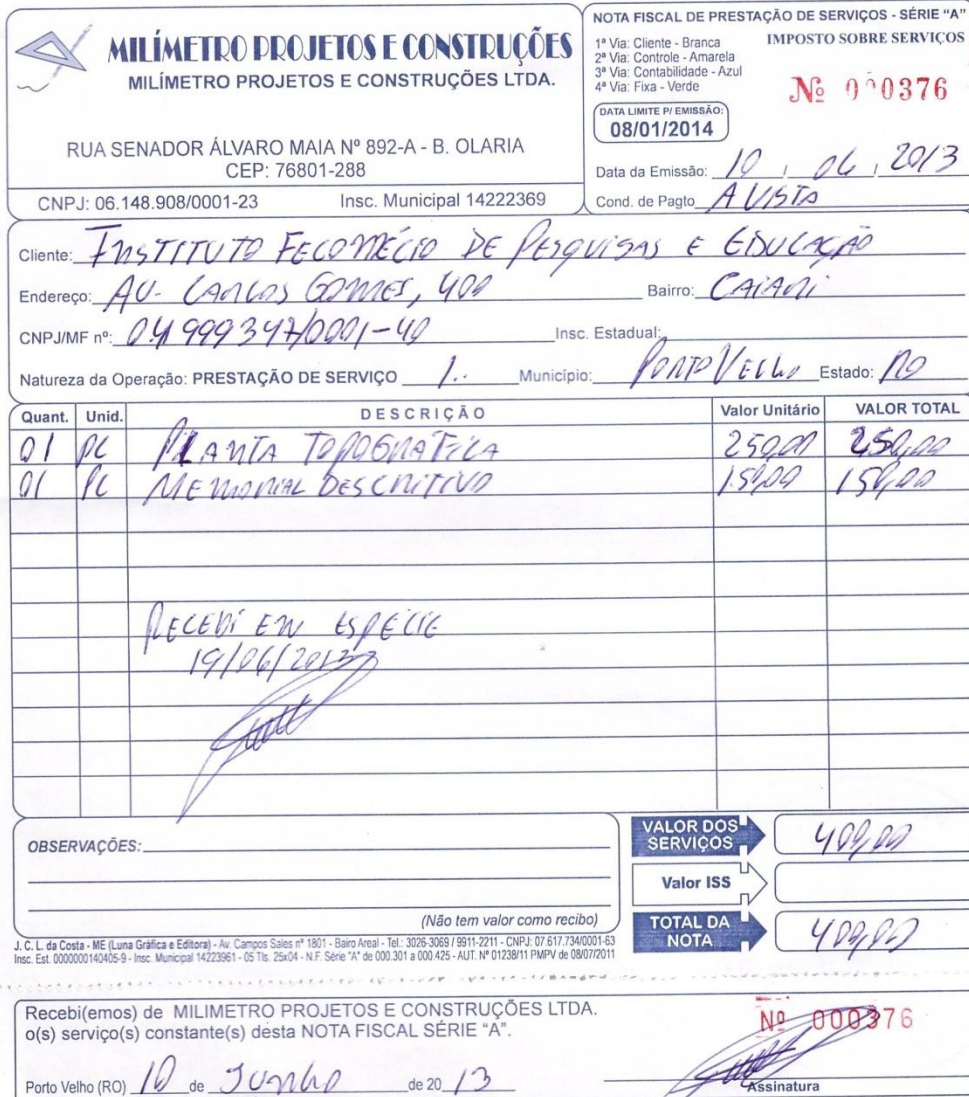 MILÍMETRO PROJETOS E CONSTRUÇÕES
MILÍMETRO PROJETOS E CONSTRUÇÕES LTDA.
RUA SENADOR ÁLVARO MAIA Nº 892-A - B. OLARIA
CEP: 76801-288
CNPJ: 06.148.908/0001-23 Insc. Municipal 14222369
NOTA FISCAL DE PRESTAÇÃO DE SERVIÇOS - SÉRIE “A”
IMPOSTO SOBRE SERVIÇOS
1ª Via: Cliente - Branca
2ª Via: Controle - Amarela
3ª Via: Contabilidade - Azul
4ª Via: Fixa - Verde
Nº 000376
DATA LIMITE P/ EMISSÃO:
08/01/2014
Data da Emissão: 10, 06, 2013
Cond. de Pagto A VISTA
Cliente: INSTITUTO FECOMÉCIO DE PESQUISAS E EDUCAÇÃO
Endereço: AV. CARLOS GOMES, 400 Bairro: CAIARI
CNPJ/MF nº: 04999347/0001-40 Insc. Estadual:
Natureza da Operação: PRESTAÇÃO DE SERVIÇO Município: PORTO VELHO Estado: RO
Quant. Unid. DESCRIÇÃO Valor Unitário VALOR TOTAL
01 PC PLANTA TOPOGRÁFICA 250,00 250,00
01 PC MEMORIAL DESCRITIVO 150,00 150,00
RECEBI EM ESPÉCIE
19/06/2013
OBSERVAÇÕES:
(Não tem valor como recibo)
VALOR DOS SERVIÇOS 400,00
Valor ISS
TOTAL DA NOTA 400,00
J. C. L. da Costa - ME (Luna Gráfica e Editora) - Av. Campos Sales nº 1801 - Bairo Areal - Tel.: 3026-3069 / 9911-2211 - CNPJ: 07.617.734/0001-63
Insc. Est. 0000000140405-9 - Insc. Municipal 14223961 - 05 Tls. 25x04 - N.F. Série "A" de 000.301 a 000.425 - AUT. Nº 01238/11 PMPV de 08/07/2011
Recebi(emos) de MILIMETRO PROJETOS E CONSTRUÇÕES LTDA.
o(s) serviço(s) constante(s) desta NOTA FISCAL SÉRIE “A”.
Nº 000376
Porto Velho (RO) 10 de JUNHO de 20 13
Assinatura